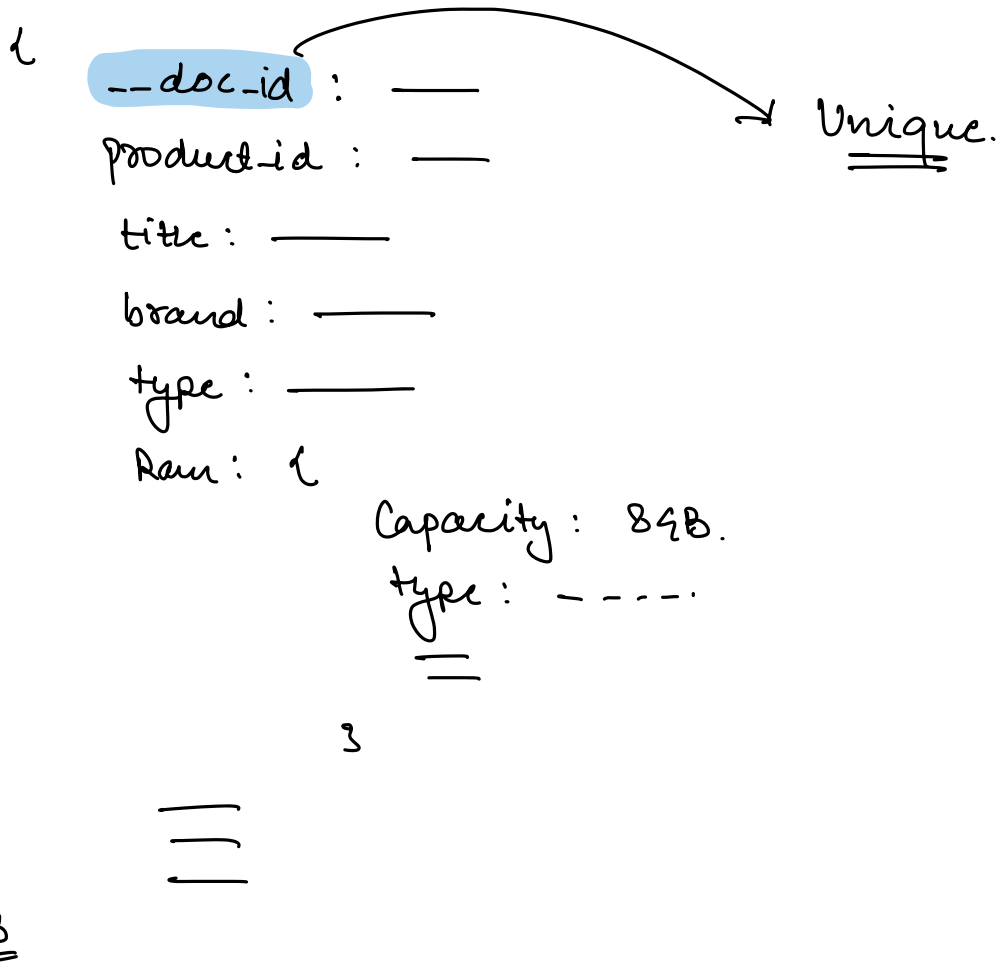 {
__doc_id : —— Unique.
product_id : ——
title : ——
brand : ——
type : ——
Ram : {
Capacity : 8GB.
type : - - - - -
}